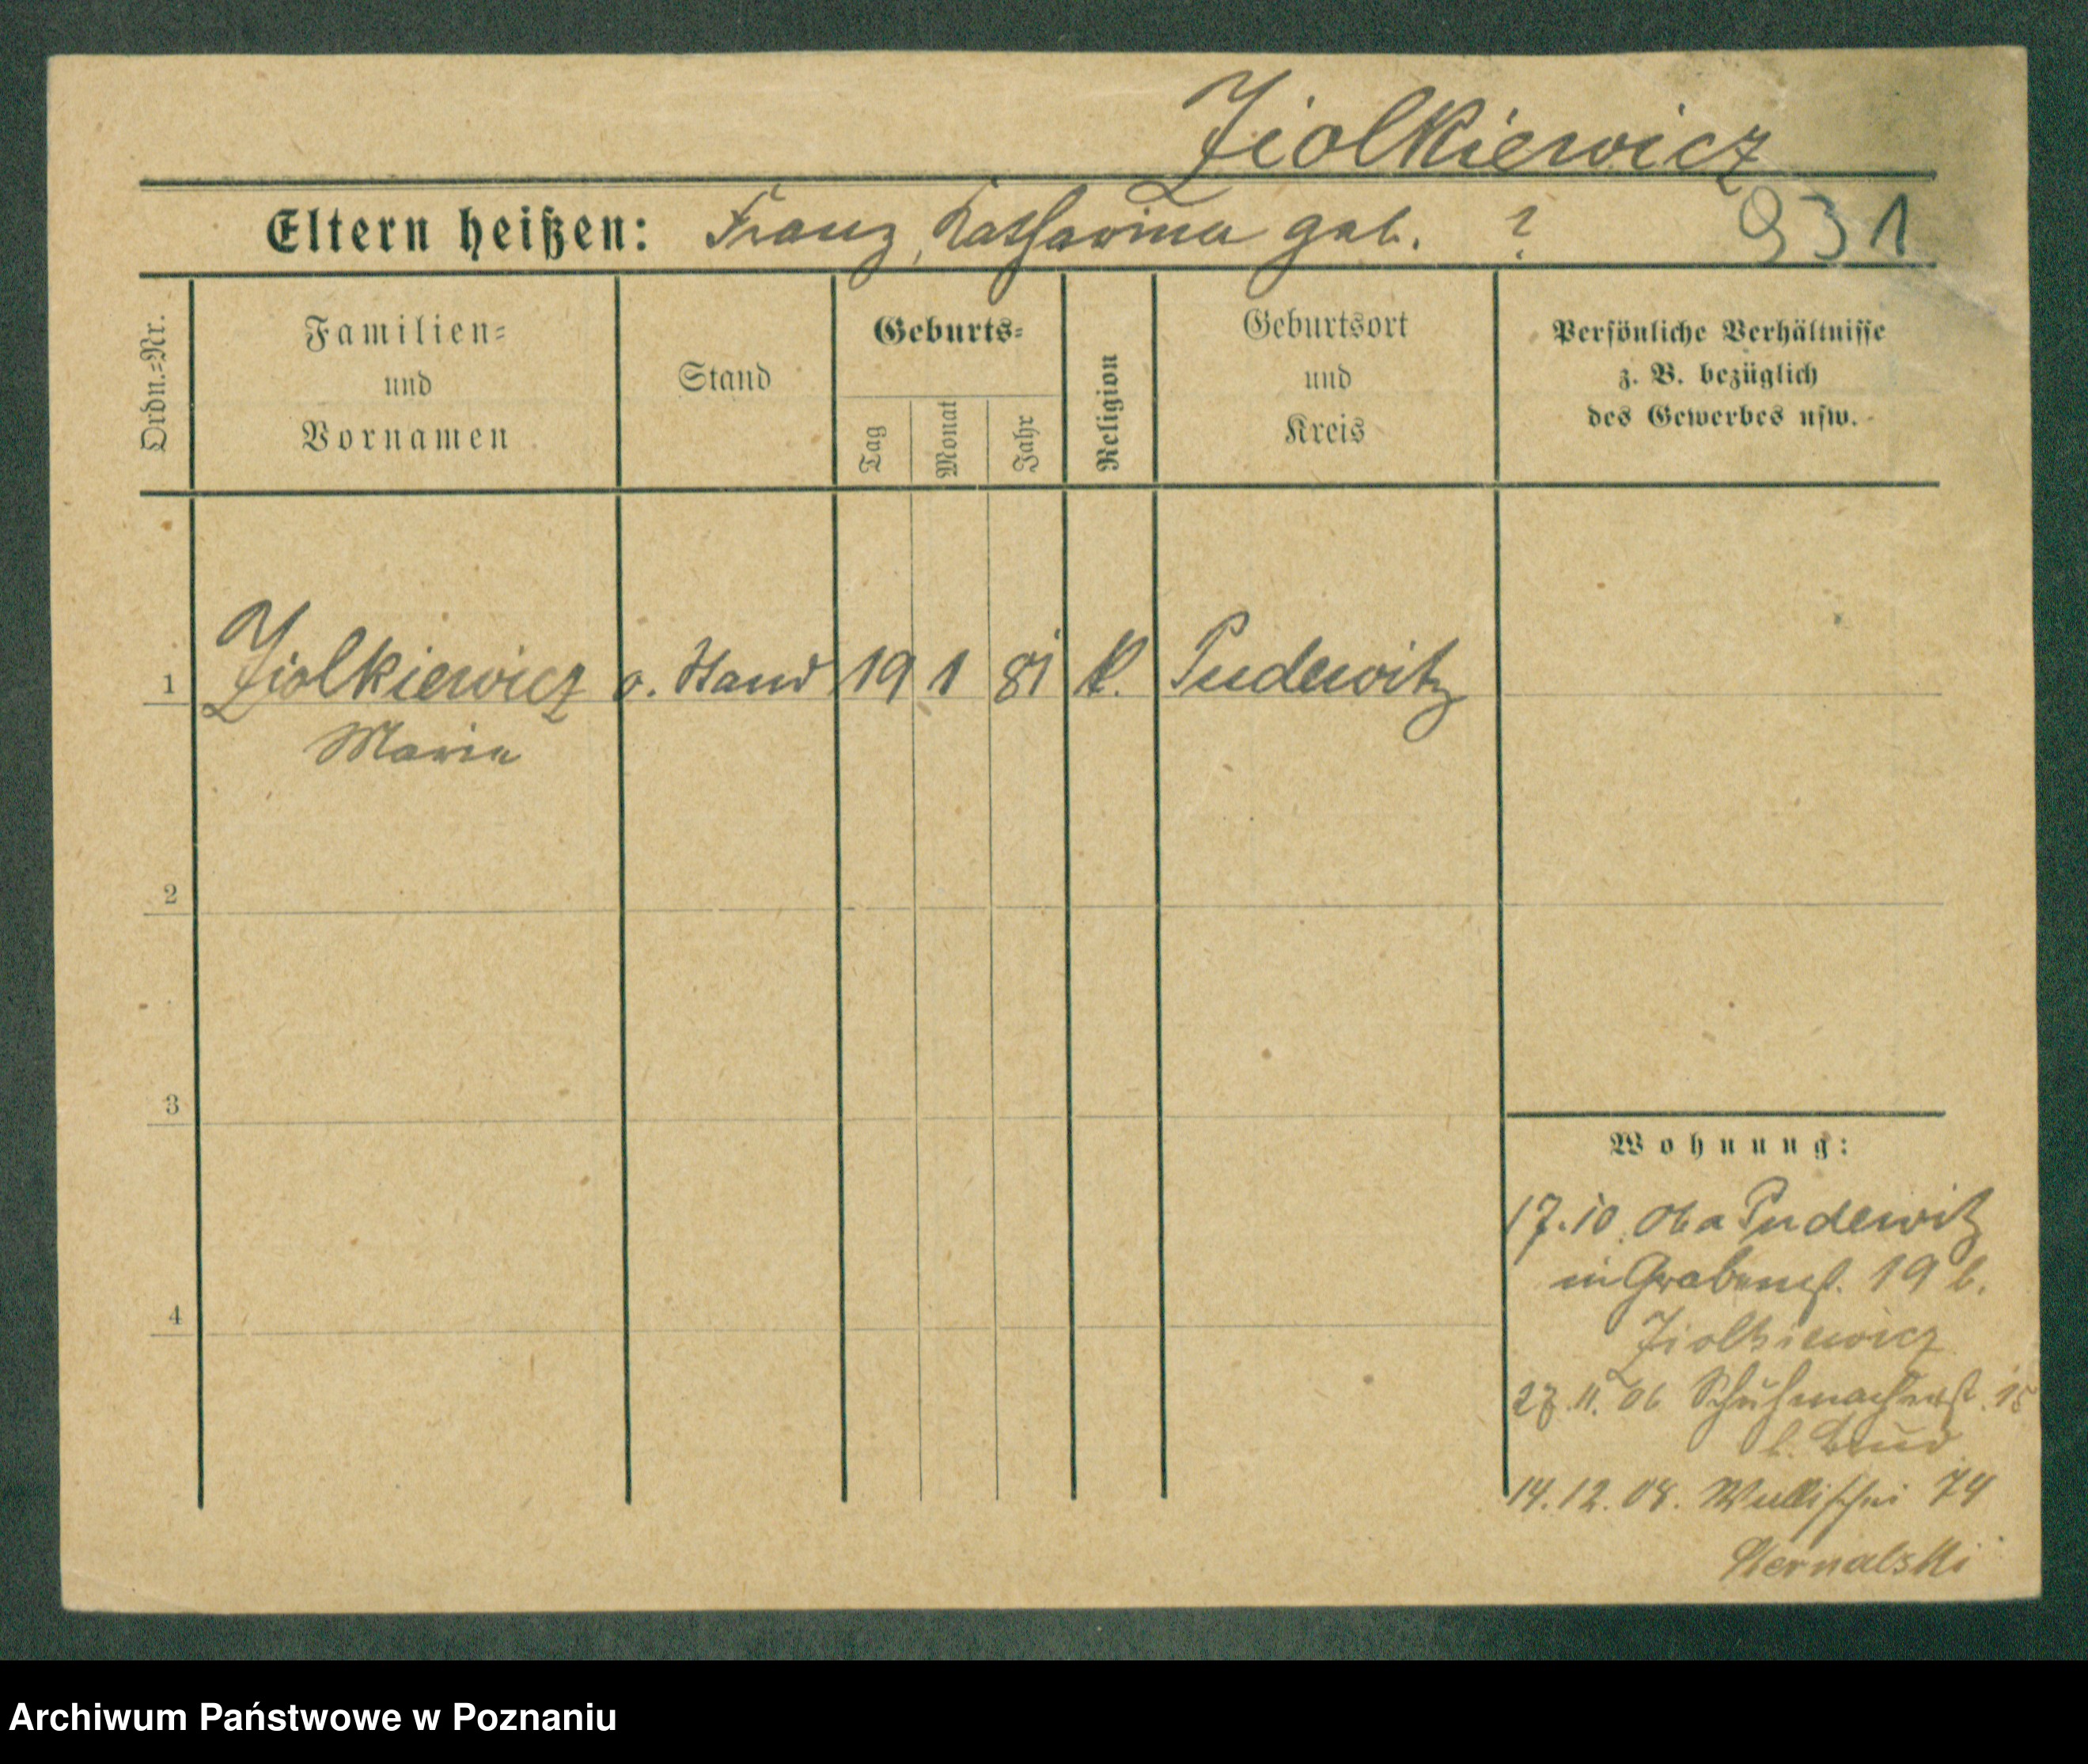 Ziolkiewicz
Eltern heißen: Franz, Katharina geb. ? 931
Ordn.-Nr.
Familien-
und
Vornamen
Stand
Geburts-
Tag
Monat
Jahr
Religion
Geburtsort
und
Kreis
Persönliche Verhältnisse
z. B. bezüglich
des Gewerbes usw.
1 Ziolkiewicz o. Stand 19 1 81 k. Pudewitz
Maria
2
3
4
Wohnung:
17.10.06 a Pudewitz
in Grabenst. 19 b.
Ziolkiewicz
27.11.06 Schuhmacherst. 15
b.
14.12.08. Wallischei 74
Archiwum Państwowe w Poznaniu